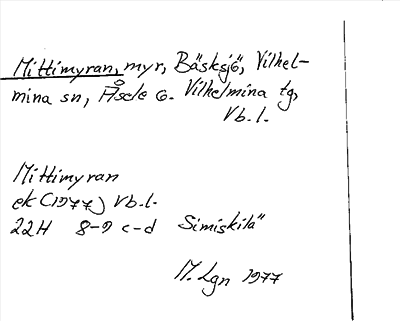 Mittimyran, myr, Bäsksjö, Vilhel-
mina sn, Åsele o. Vilhelmina tg,
Vb.l.
Mittimyran
ek (1977) Vb.l.
22H 8-9 c-d Simiskilä"
M. Lgn 1977